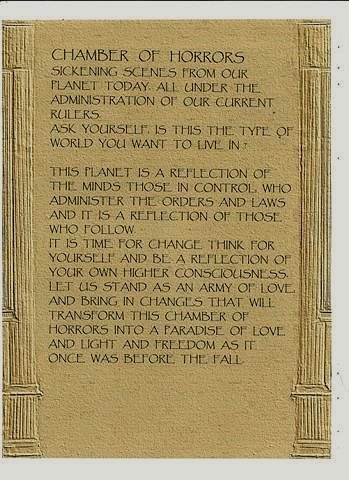 CHAMBER OF HORRORS
SICKENING SCENES FROM OUR
PLANET TODAY. ALL UNDER THE
ADMINISTRATION OF OUR CURRENT
RULERS.
ASK YOURSELF, IS THIS THE TYPE OF
WORLD YOU WANT TO LIVE IN ?
THIS PLANET IS A REFLECTION OF
THE MINDS THOSE IN CONTROL, WHO
ADMINISTER THE ORDERS AND LAWS
AND IT IS A REFLECTION OF THOSE
WHO FOLLOW.
IT IS TIME FOR CHANGE THINK FOR
YOURSELF AND BE A REFLECTION OF
YOUR OWN HIGHER CONSCIOUSNESS.
LET US STAND AS AN ARMY OF LOVE,
AND BRING IN CHANGES THAT WILL
TRANSFORM THIS CHAMBER OF
HORRORS INTO A PARADISE OF LOVE
AND LIGHT AND FREEDOM AS IT
ONCE WAS BEFORE THE FALL